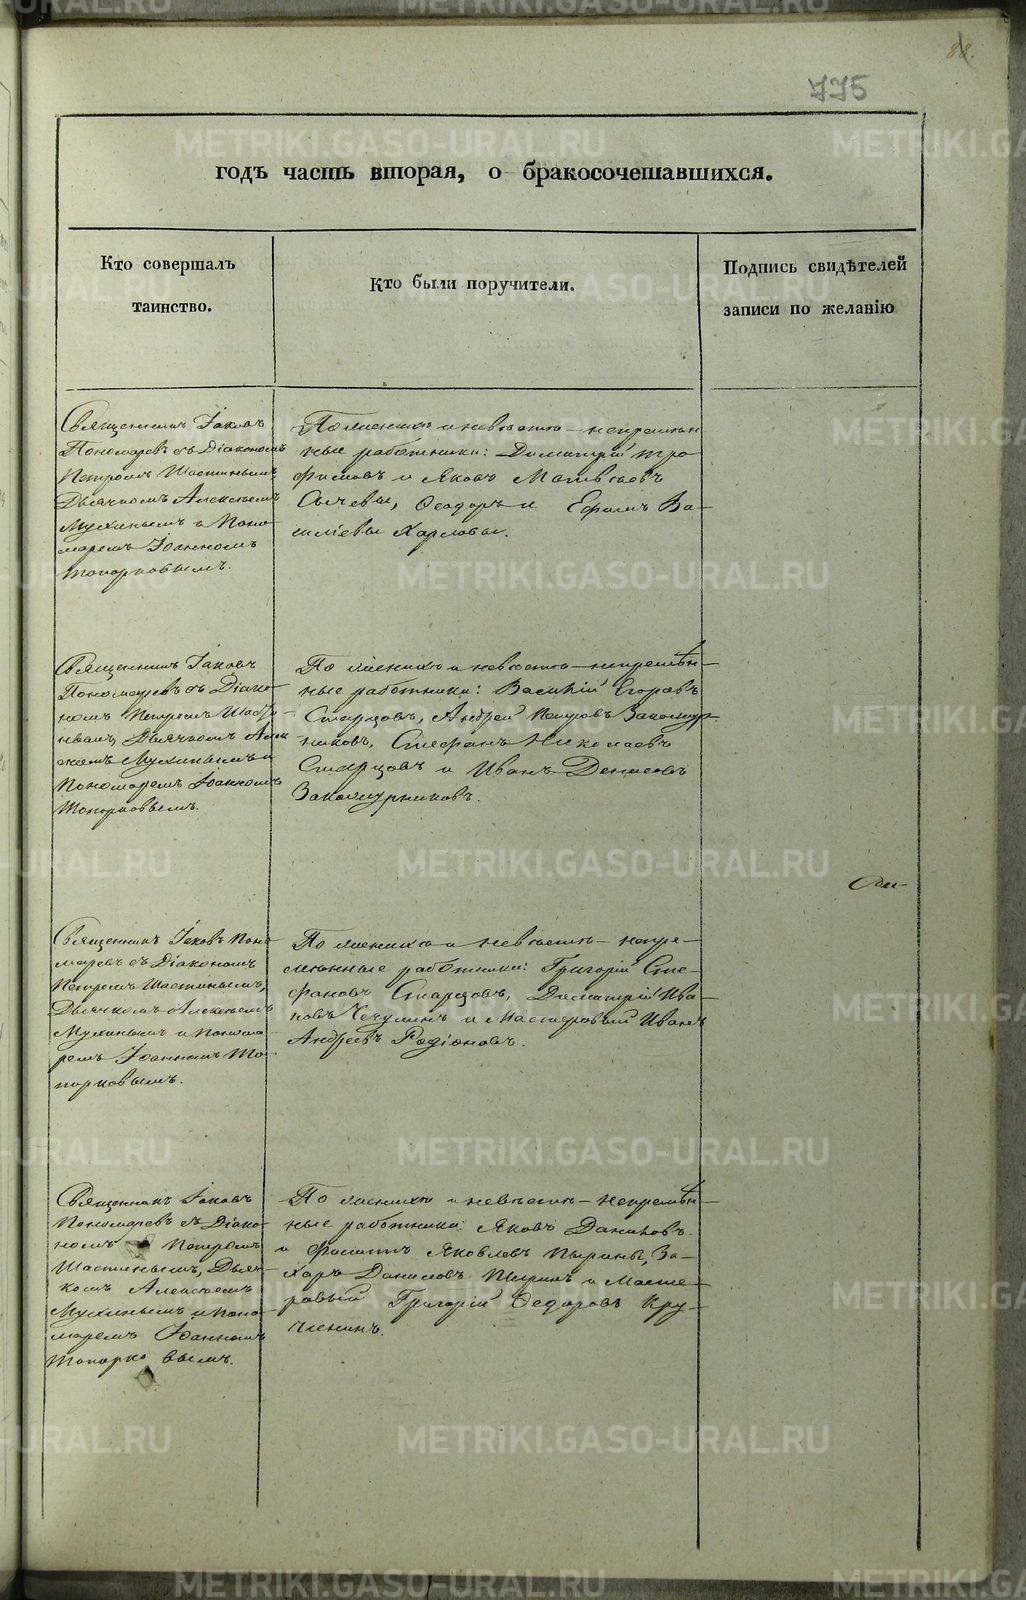 88.
775
годъ часть вторая, о бракосочетавшихся.
Кто совершалъ
таинство.
Кто были поручители.
Подпись свидѣтелей
записи по желанію
Священникъ Іаковъ
Пономаревъ съ Діакономъ
Петромъ Шастинымъ,
Дьячкомъ Алексѣемъ
Мухинымъ и Поно-
маремъ Іоанномъ
Топорковымъ.
По женихѣ и невѣстѣ – непремѣн
ные работники: Димитрій Тро
фимовъ и Яковъ Матвѣевъ
Сычевы, Ѳеодоръ и Ефимъ Ва-
сильевы Харловы.
Священникъ Іаковъ
Пономаревъ съ Діако-
номъ Петромъ Шасти-
нымъ, Дьячкомъ Алек
сѣемъ Мухинымъ и
Пономаремъ Іоанномъ
Топорковымъ.
По женихѣ и невѣстѣ – непремѣн-
ные работники: Василій Егоровъ
Старцовъ, Андрей Петровъ Закомур-
никовъ, Стефанъ Николаевъ
Старцовъ и Иванъ Денисовъ
Закомурниковъ.
Оди-
Священникъ Іаковъ Поно
маревъ съ Діакономъ
Петромъ Шастинымъ,
Дьячкомъ Алексѣемъ
Мухинымъ и Понома
ремъ Іоанномъ То-
порковымъ.
По женихѣ и невѣстѣ – непре-
мѣнные работники: Григорій Сте-
фановъ Старцовъ, Димитрій Ива-
новъ Чечулинъ и Мастеровый Иванъ
Андреевъ Родіоновъ.
Священникъ Іаковъ
Пономаревъ съ Діако-
номъ Петромъ
Шастинымъ, Дьяч-
комъ Алексѣемъ
Мухинымъ и Поно-
маремъ Іоанномъ
Топорковымъ.
По женихѣ и невѣстѣ – Непремѣн-
ные работники: Яковъ Даниловъ
и Филиппъ Яковлевъ Пырины, За-
харъ Даниловъ Пыринъ и Масте-
ровый Григорій Ѳедоровъ Кру-
METRIKI.GASO-URAL.RU